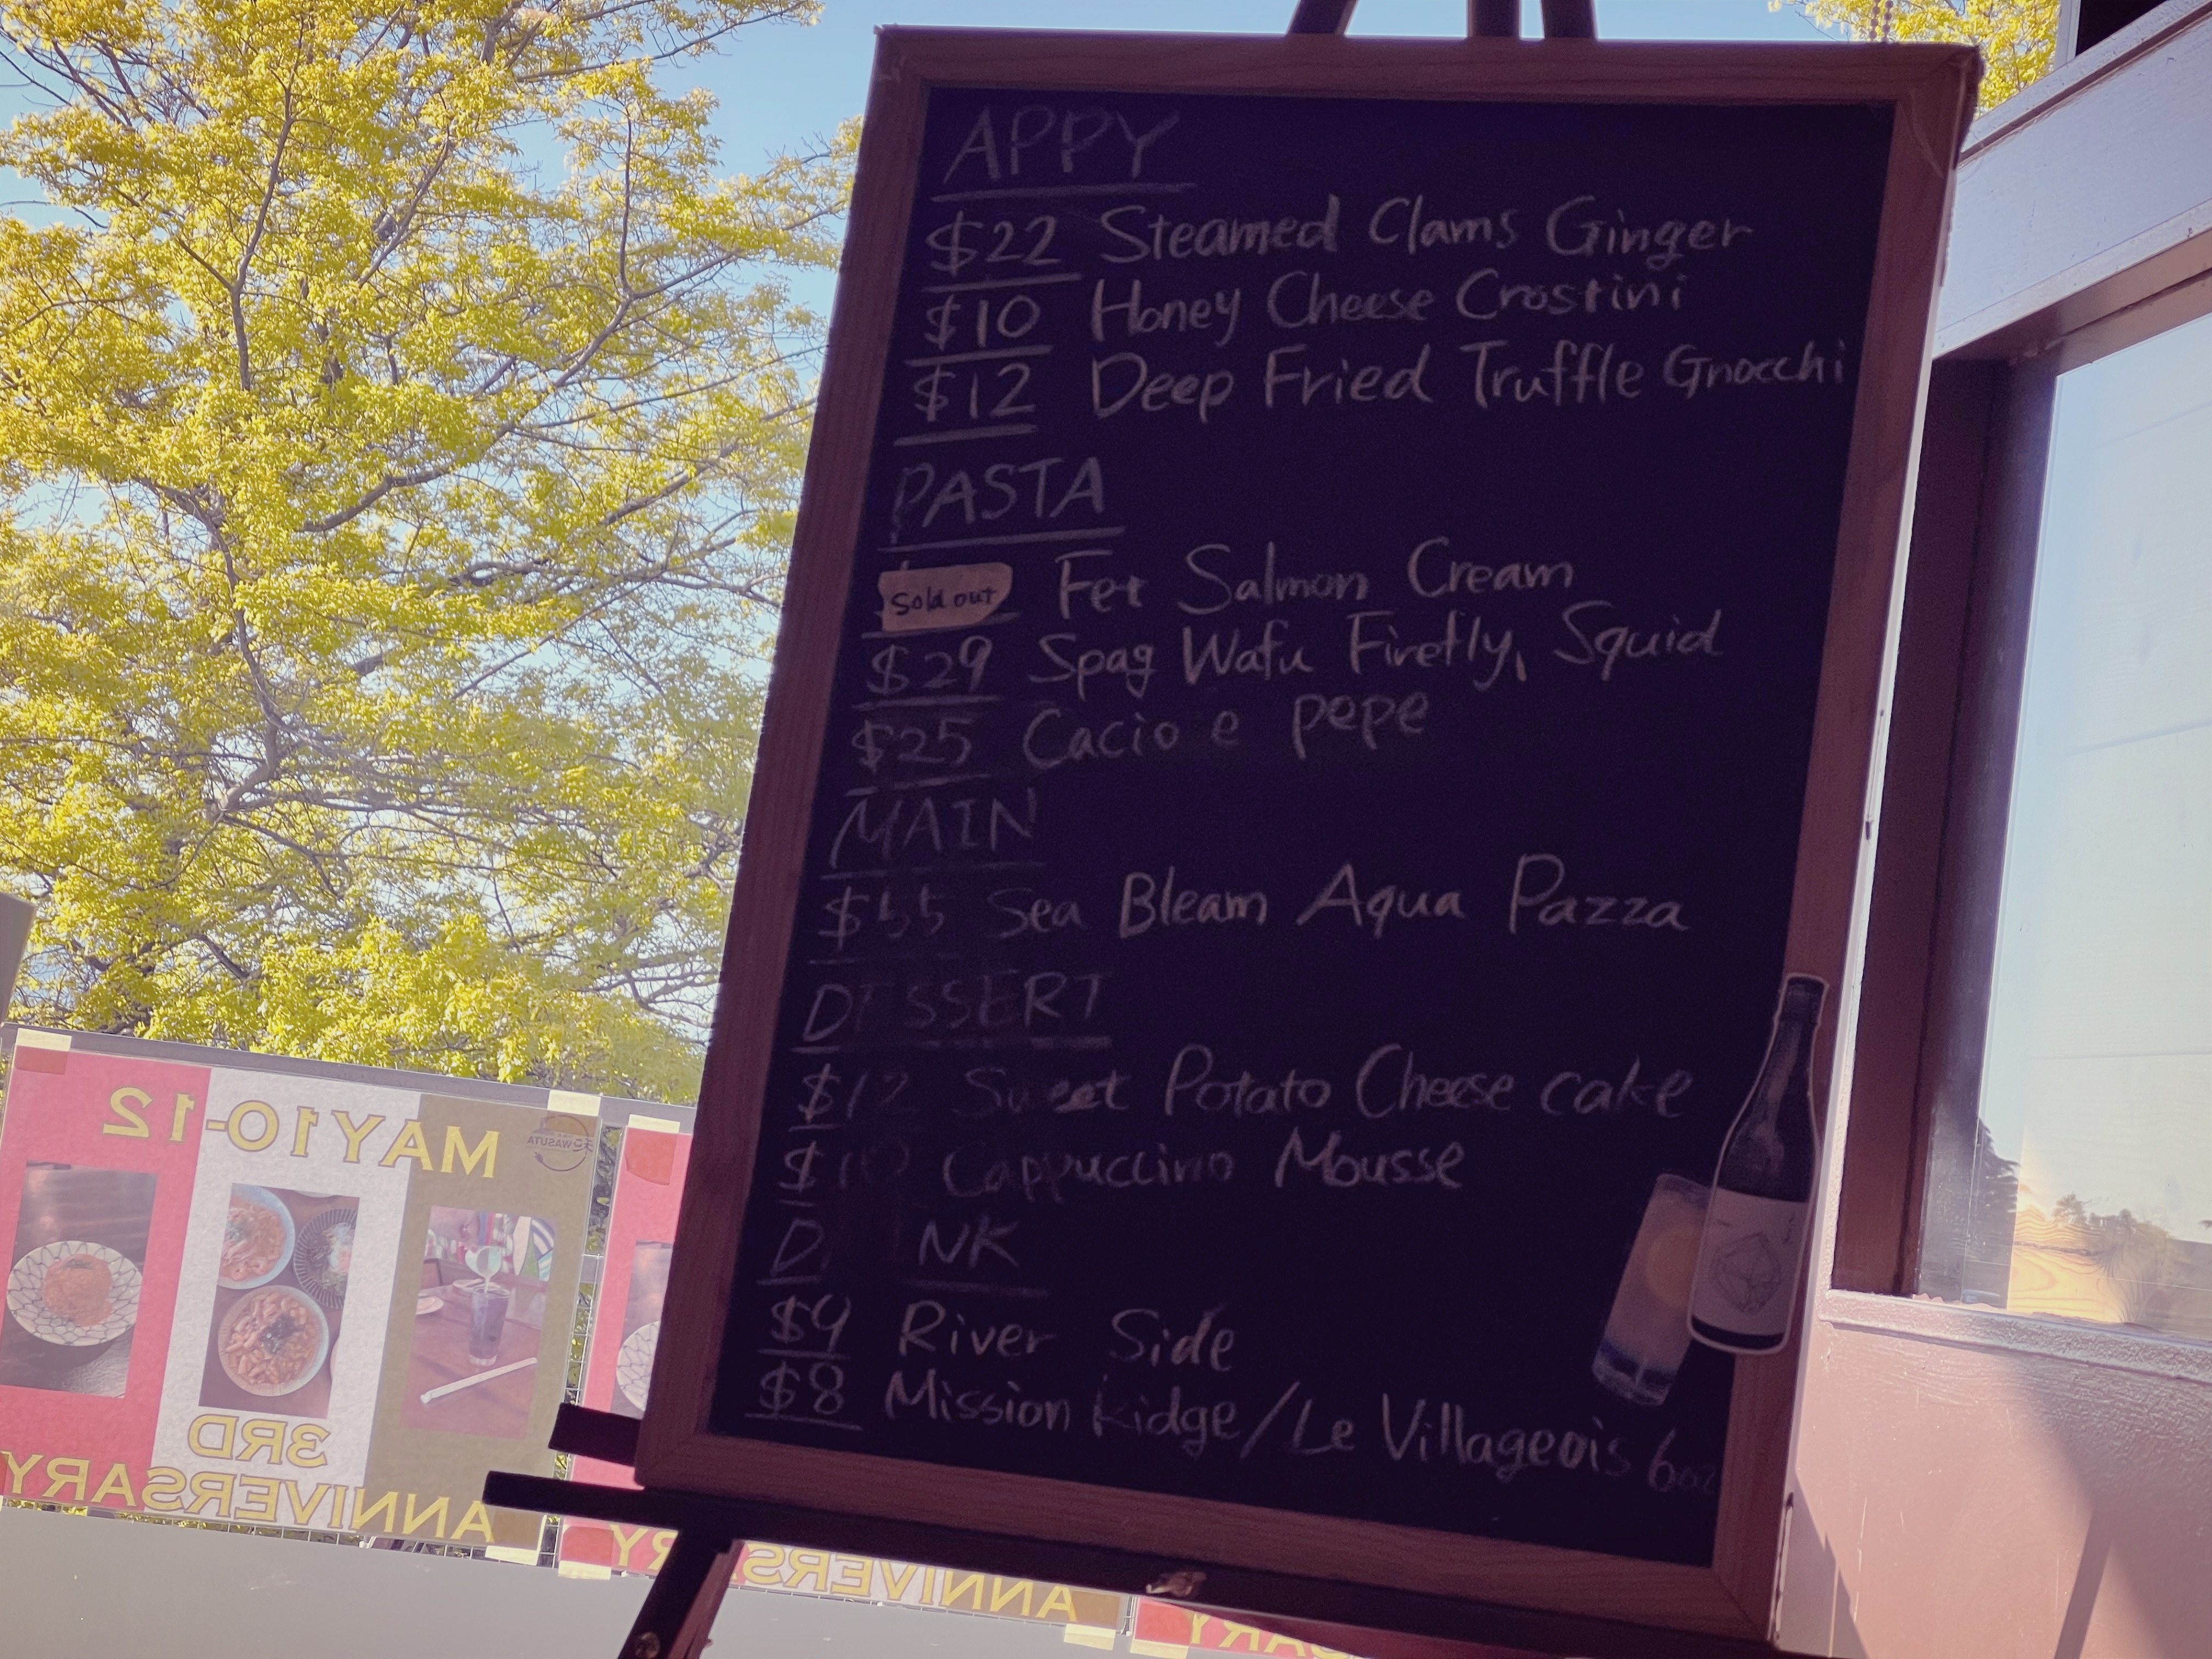 APPY
$22 Steamed Clams Ginger
$10 Honey Cheese Crostini
$12 Deep Fried Truffle Gnocchi
PASTA
Sold out Fet Salmon Cream
$29 Spag Wafu Firefly, Squid
$25 Cacio e pepe
MAIN
$55 Sea Bleam Aqua Pazza
DESSERT
$12 Sweet Potato Cheese cake
$10 Cappuccino Mousse
D  INK
$9 River Side
$8 Mission Ridge/Le Villageois 6oz
MAY10-12
WASUTA
3RD
ANNIVERSARY
ANNIVERSARY